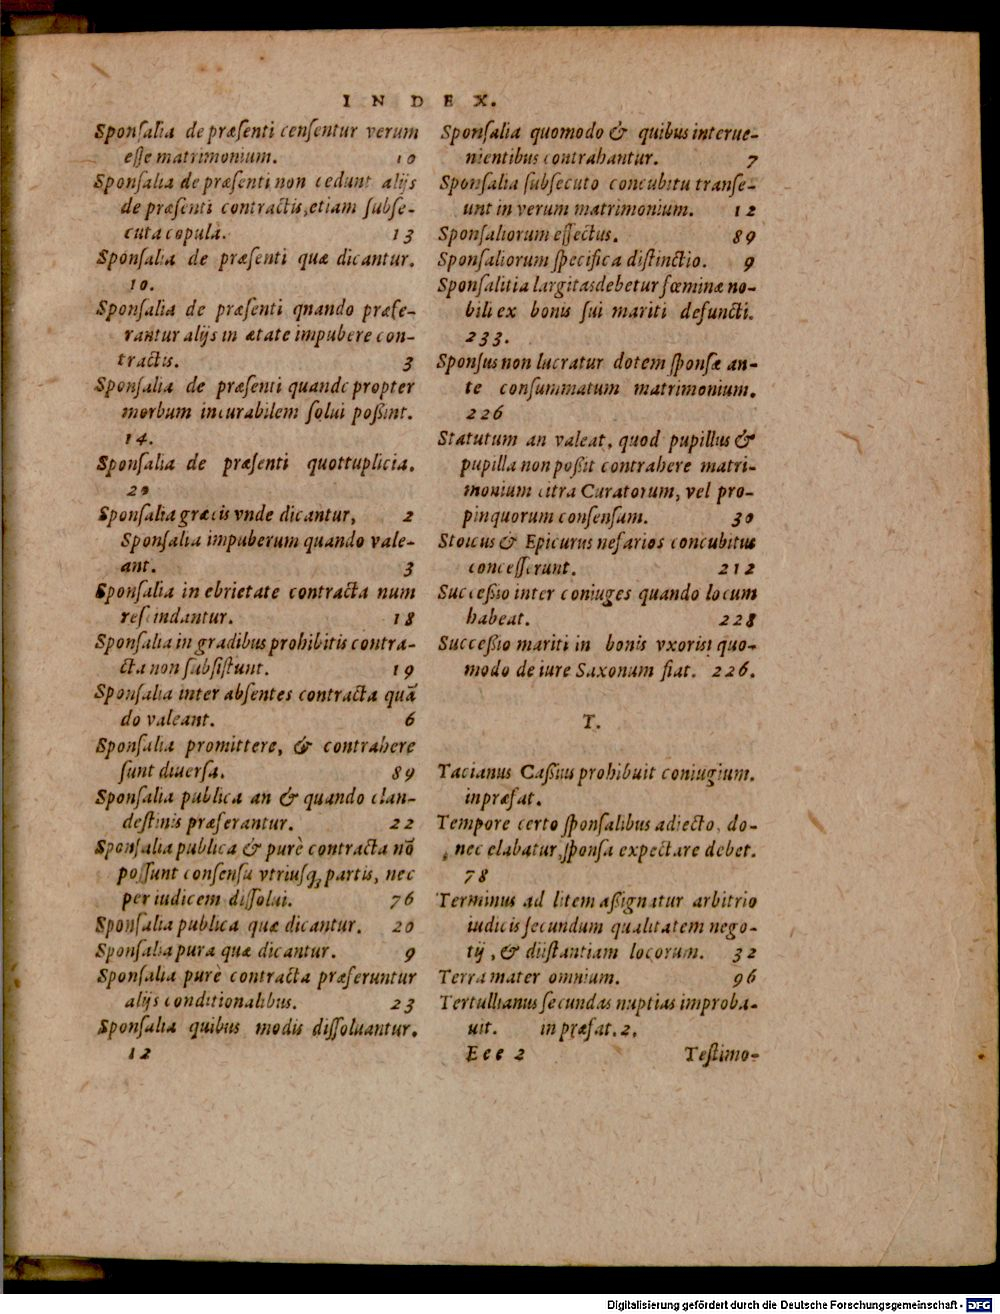 INDEX.
Sponſalia de præſenti cenſentur verum
eſſe matrimonium. 10
Sponſalia de præſenti non cedunt alijs
de præſenti contractis, etiam ſubſe-
cuta copula. 13
Sponſalia de præſenti quæ dicantur.
10.
Sponſalia de præſenti qnando præfe-
rantur alijs in ætate impubere con-
tractis. 3
Sponſalia de præſenti quando propter
morbum incurabilem ſolui poßint.
14.
Sponſalia de præſenti quottuplicia.
20
Sponſalia græcis vnde dicantur, 2
Sponſalia impuberum quando vale-
ant. 3
Sponſalia in ebrietate contracta num
reſcindantur. 18
Sponſalia in gradibus prohibitis contra-
cta non ſubſiſtunt. 19
Sponſalia inter abſentes contracta quā
do valeant. 6
Sponſalia promittere, & contrahere
ſunt diuerſa. 89
Sponſalia publica an & quando clan-
deſtinis præferantur. 22
Sponſalia publica & purè contracta nō
poſſunt conſenſu vtriusq; partis, nec
per iudicem diſſolui. 76
Sponſalia publica quæ dicantur. 20
Sponſalia pura quæ dicantur. 9
Sponſalia purè contracta præferuntur
alijs conditionalibus. 23
Sponſalia quibus modis diſſoluantur.
12
Sponſalia quomodo & quibus interue-
nientibus contrahantur. 7
Sponſalia ſubſecuto concubitu tranſe-
unt in verum matrimonium. 12
Sponſaliorum effectus. 89
Sponſaliorum ſpecifica diſtinctio. 9
Sponſalitia largitas debetur fœminæ no-
bili ex bonis ſui mariti defuncti.
233.
Sponſus non lucratur dotem ſponſæ an-
te conſummatum matrimonium.
226
Statutum an valeat, quod pupillus &
pupilla non poßit contrahere matri-
monium citra Curatorum, vel pro-
pinquorum conſenſum. 30
Stoicus & Epicurus nefarios concubitus
conceſſerunt. 212
Succeßio inter coniuges quando locum
habeat. 228
Succeßio mariti in bonis vxoris quo-
modo de iure Saxonum fiat. 226.
T.
Tacianus Caßius prohibuit coniugium.
in præfat.
Tempore certo ſponſalibus adiecto, do-
nec elabatur, ſponſa expectare debet.
78
Terminus ad litem aßignatur arbitrio
iudicis ſecundum qualitatem nego-
tij, & diiſtantiam locorum. 32
Terra mater omnium. 96
Tertullianus ſecundas nuptias improba-
uit. in præfat. 2.
Eee 2 Teſtimo-
Digitalisierung gefördert durch die Deutsche Forschungsgemeinschaft - DFG